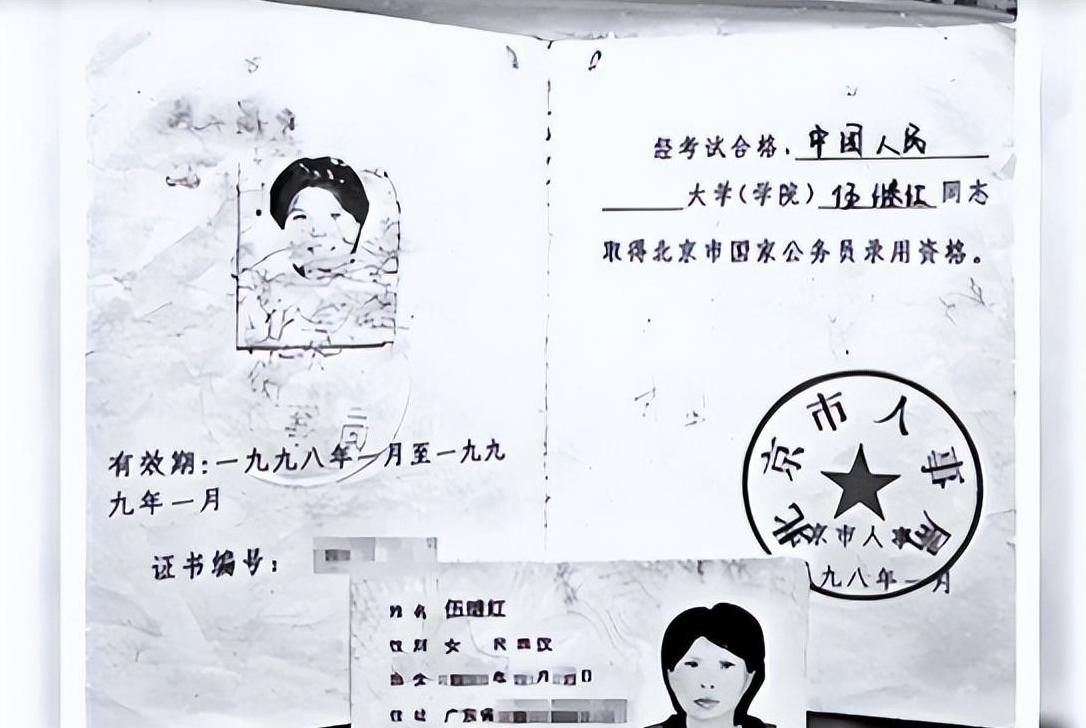 经考试合格，中国人民
大学(学院)伍继红同志
取得北京市国家公务员录用资格。
北京市人事局
京市人事
九八年一月
有效期:一九九八年一月至一九九
九年一月
证书编号:
姓名 伍继红
性别 女 民族 汉
出生 年 月 日
住址 广东省